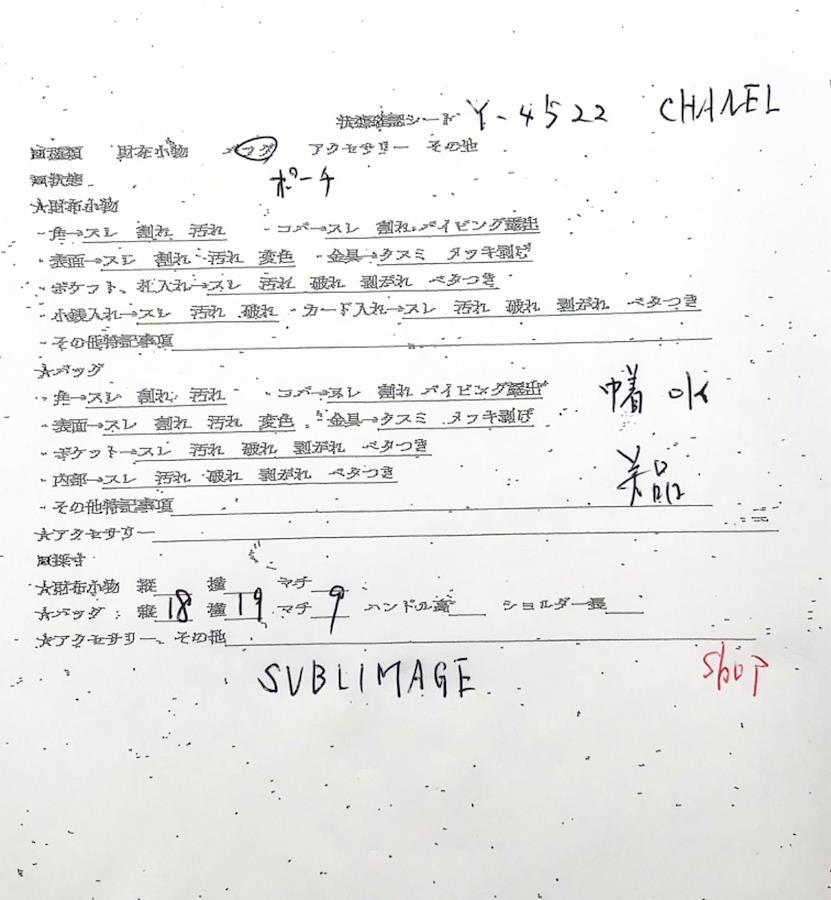 状態確認シート Y-4522 CHANEL
■種類 財布小物 バッグ アクセサリー その他
■状態 ポーチ
★財布小物
・角→スレ 割れ 汚れ ・コバ→スレ 割れ パイピング露出
・表面→スレ 割れ 汚れ 変色 ・金具→クスミ メッキ剥げ
・ポケット、札入れ→スレ 汚れ 破れ 剥がれ ベタつき
・小銭入れ→スレ 汚れ 破れ ・カード入れ→スレ 汚れ 破れ 剥がれ ベタつき
・その他特記事項
★バッグ
・角→スレ 割れ 汚れ ・コバ→スレ 割れ パイピング露出
・表面→スレ 割れ 汚れ 変色 ・金具→クスミ メッキ剥げ 巾着
・ポケット→スレ 汚れ 破れ 剥がれ ベタつき
・内部→スレ 汚れ 破れ 剥がれ ベタつき 美品
・その他特記事項
★アクセサリー
■採寸
★財布小物 縦 横 マチ
★バッグ：縦 18 横 19 マチ 9 ハンドル高 ショルダー長
★アクセサリー、その他
SUBLIMAGE
SHOP